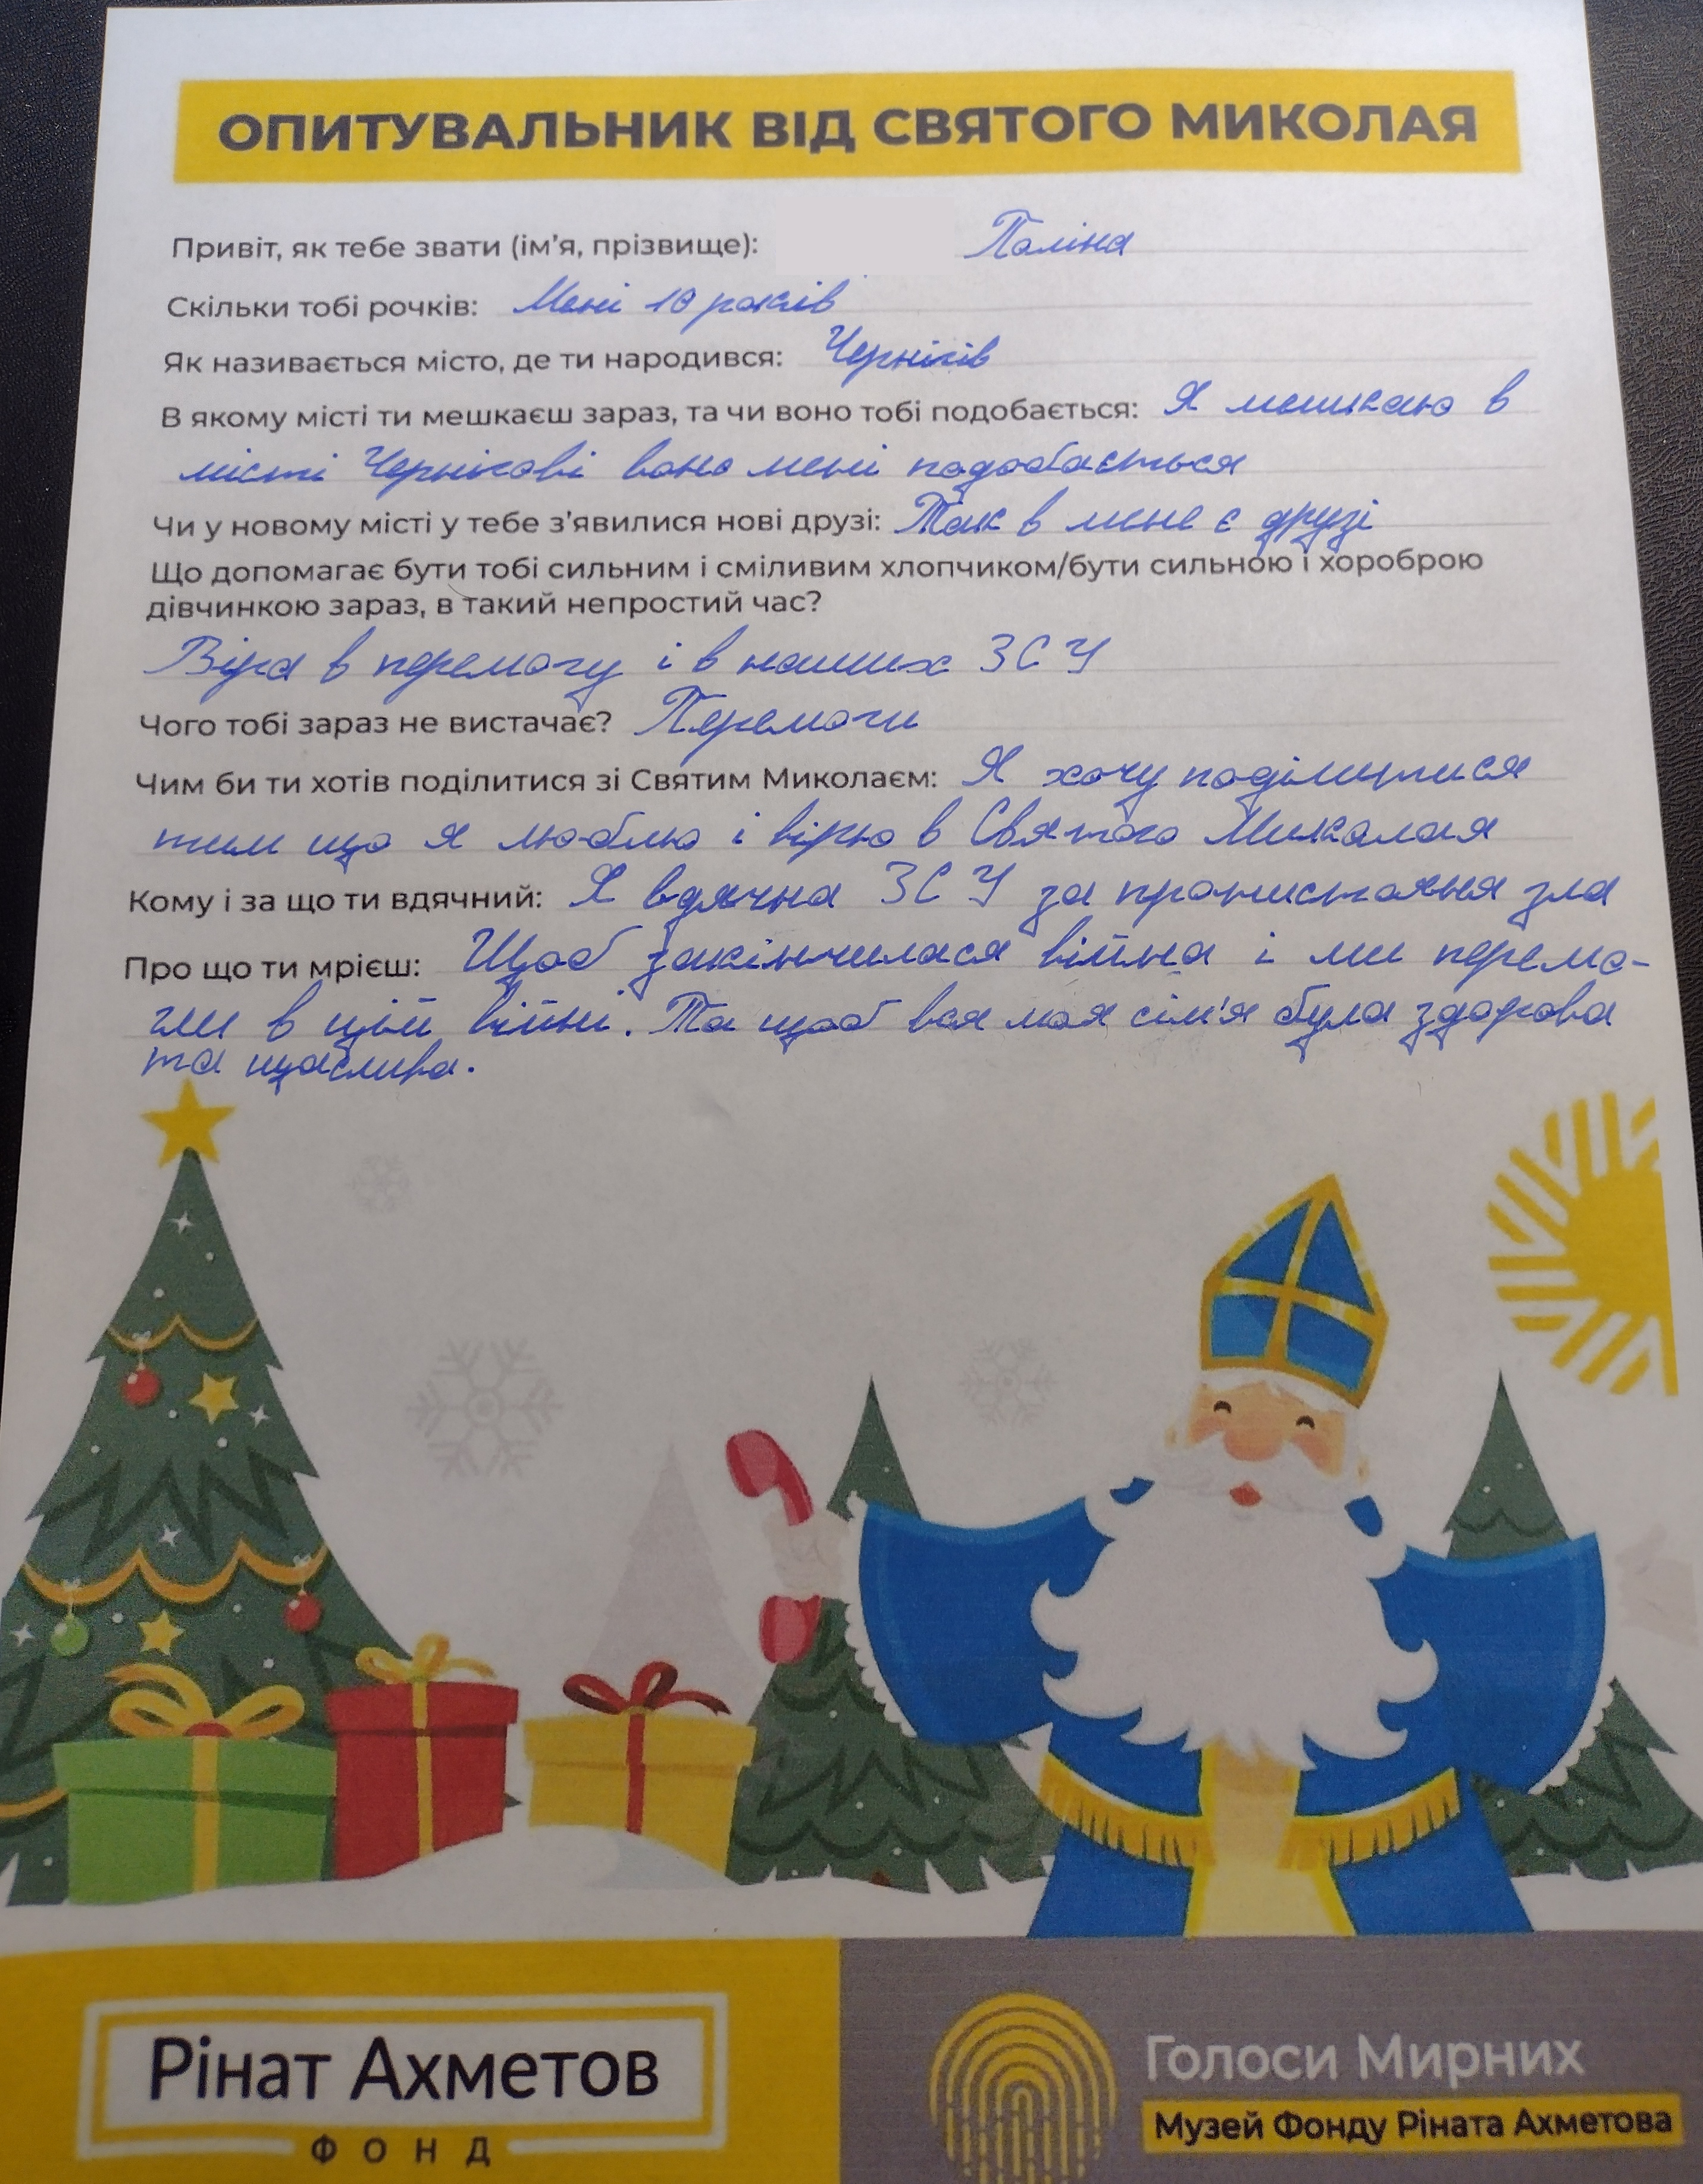 ОПИТУВАЛЬНИК ВІД СВЯТОГО МИКОЛАЯ
Привіт, як тебе звати (ім'я, прізвище): Поліна
Скільки тобі рочків: Мені 10 років
Як називається місто, де ти народився: Чернігів
В якому місті ти мешкаєш зараз, та чи воно тобі подобається: Я мешкаю в
місті Чернігові воно мені подобається
Чи у новому місті у тебе з'явилися нові друзі: Так в мене є друзі
Що допомагає бути тобі сильним і сміливим хлопчиком/бути сильною і хороброю
дівчинкою зараз, в такий непростий час?
Віра в перемогу і в наших ЗСУ
Чого тобі зараз не вистачає? Перемоги
Чим би ти хотів поділитися зі Святим Миколаєм: Я хочу поділитися
тим що я люблю і вірю в Святого Миколая
Кому і за що ти вдячний: Я вдячна ЗСУ за протистояння зла
Про що ти мрієш: Щоб закінчилася війна і ми перемо-
гли в цій війні. Та щоб вся моя сім'я була здорова
та щаслива.
Рінат Ахметов
ФОНД
Голоси Мирних
Музей Фонду Ріната Ахметова